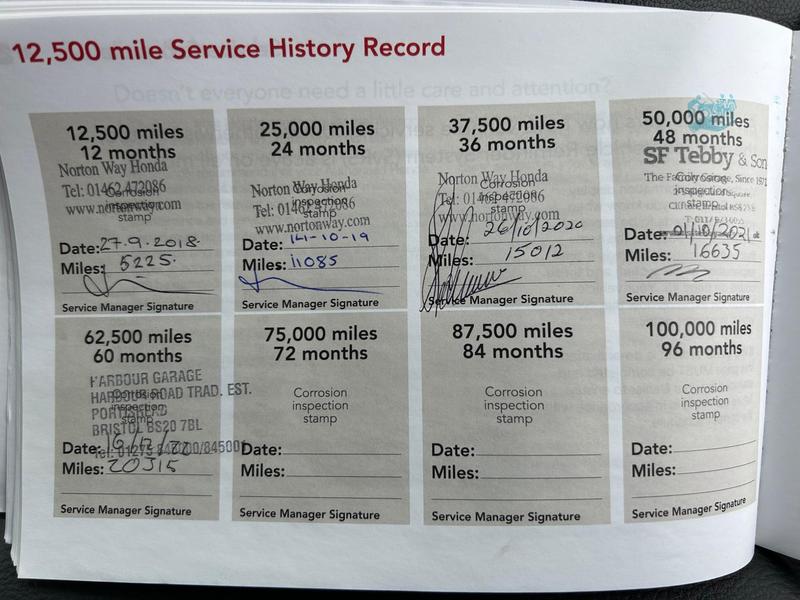 12,500 mile Service History Record
Doesn't everyone need a little care and attention?
12,500 miles
12 months
Norton Way Honda
Tel: 01462 472086
Corrosion
inspection
www.nortonway.com
stamp
Date: 27.9.2018.
Miles: 5225.
Service Manager Signature
25,000 miles
24 months
Norton Way Honda
Corrosion
inspection
Tel: 01462 472086
stamp
www.nortonway.com
Date: 14-10-19
Miles: 11085
Service Manager Signature
37,500 miles
36 months
Norton Way Honda
Corrosion
Tel: 01462 472086
inspection
stamp
www.nortonway.com
Date: 26/10/2020
Miles: 15012
Service Manager Signature
50,000 miles
48 months
SF Tebby & Son
The Family Garage, Since 1972
Corrosion
inspection
stamp
Date: 01/10/2021
Miles: 16635
Service Manager Signature
62,500 miles
60 months
HARBOUR GARAGE
HARBOUR ROAD TRAD. EST.
Corrosion
inspection
PORTISHEAD
stamp
BRISTOL BS20 7BL
Date: 16/12/22
Tel: 01275
Miles: 20315
Service Manager Signature
75,000 miles
72 months
Corrosion
inspection
stamp
Date:
Miles:
Service Manager Signature
87,500 miles
84 months
Corrosion
inspection
stamp
Date:
Miles:
Service Manager Signature
100,000 miles
96 months
Corrosion
inspection
stamp
Date:
Miles:
Service Manager Signature